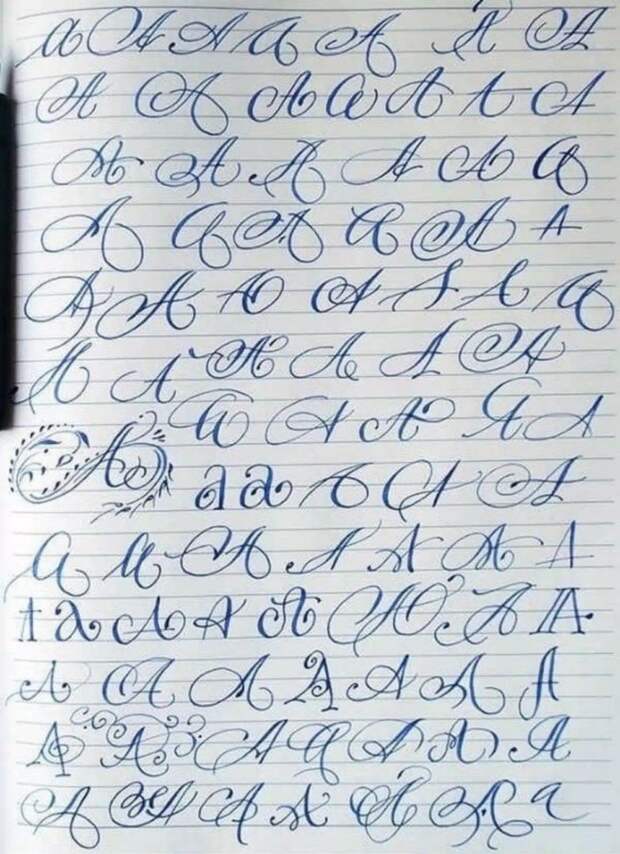 a A A a A A A
A A A a A A A
A A A A A a
A a A a A A
A A A A A A a
A A A A A A
a A A A A
A a a A A A
a a A A A A A
A a A A A A A A
A A A A A A A
A A A a A A A
A A A A A A a